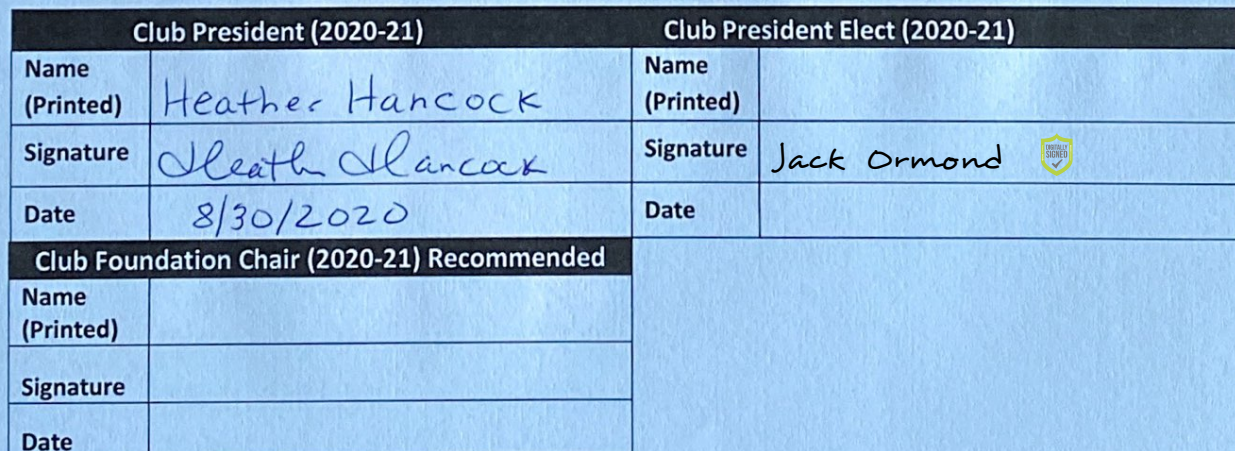 Club President (2020-21)
Name
(Printed)
Heather Hancock
Signature
Heath Hancock
Date
8/30/2020
Club President Elect (2020-21)
Name
(Printed)
Signature
Jack Ormond
DIGITALLY
SIGNED
Date
Club Foundation Chair (2020-21) Recommended
Name
(Printed)
Signature
Date